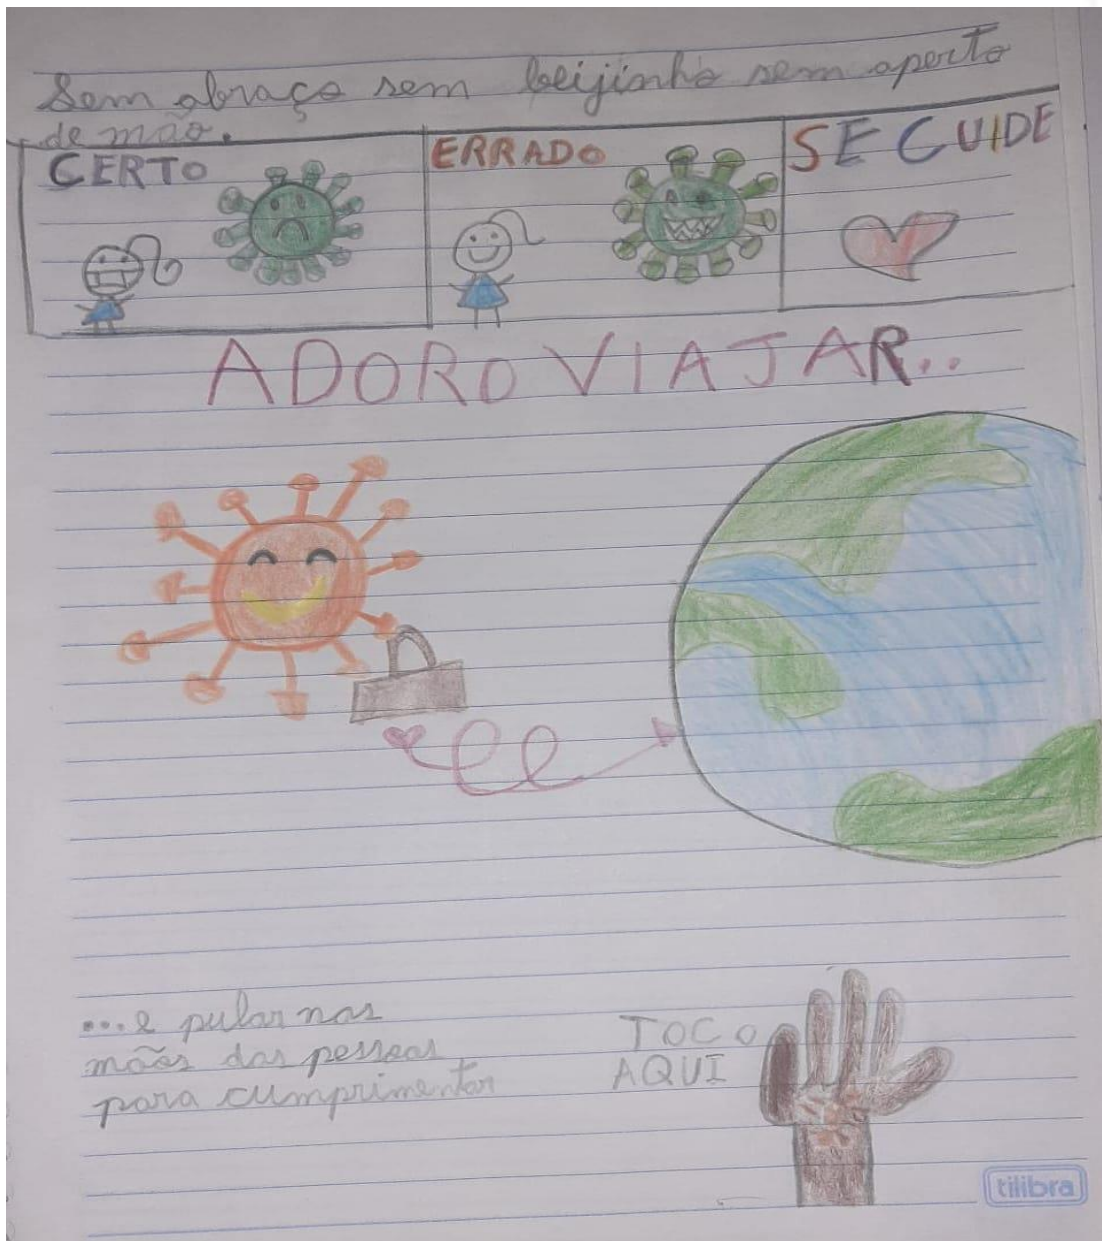 Sem abraço sem beijinho sem aperto
de mão.
CERTO
ERRADO
SE CUIDE
ADORO VIAJAR..
...e pular nas
mãos das pessoas
para cumprimentar
TOCO
AQUI
tilibra